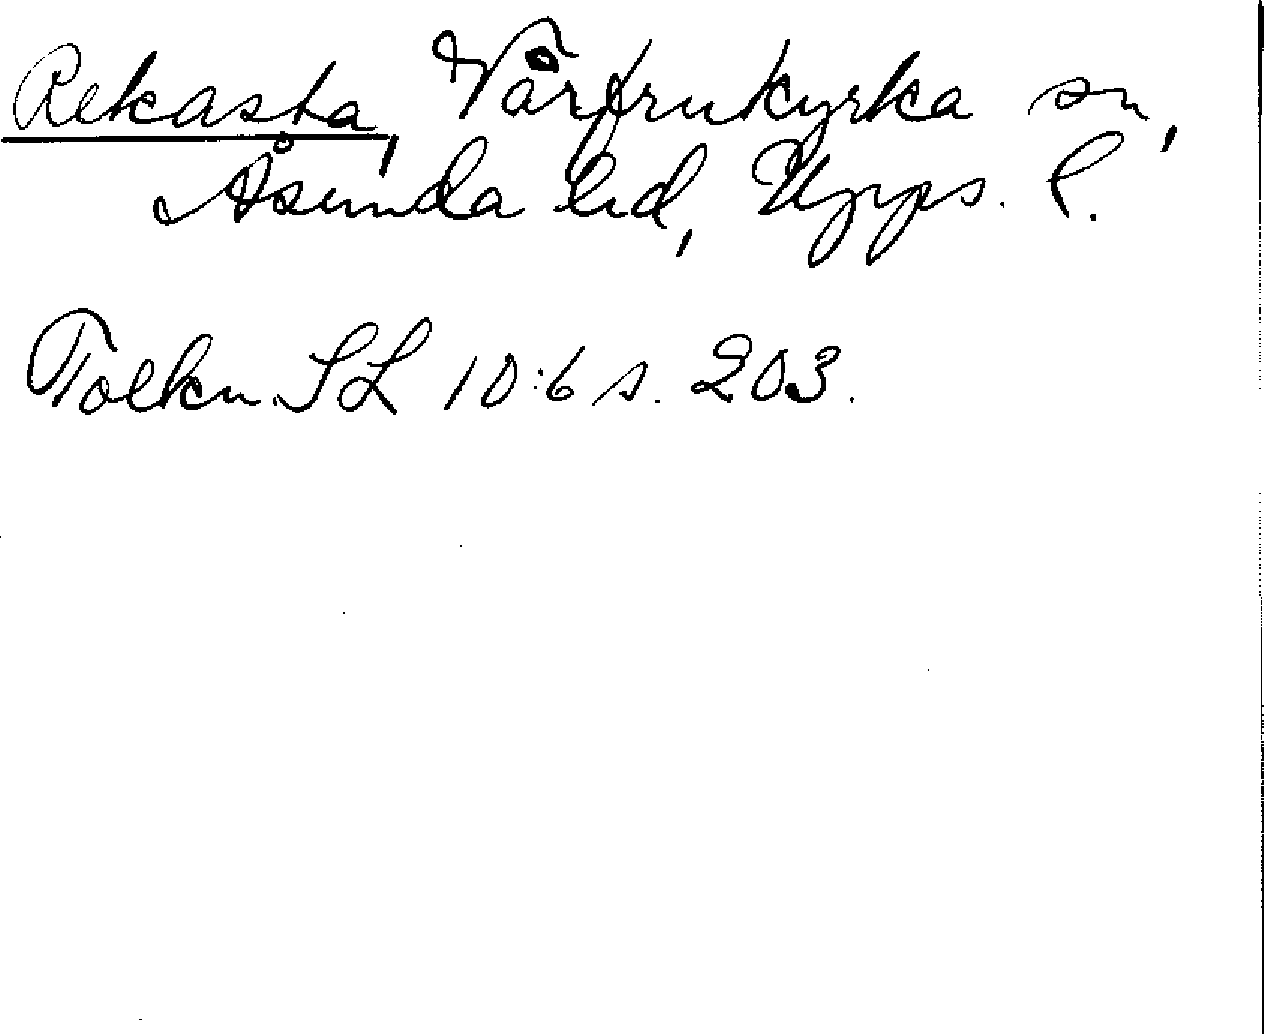 Rekasta, Vårfrukyrka sn,
Åsunda hd, Upps. l.
Tolkn. SL 10:6 s. 203.